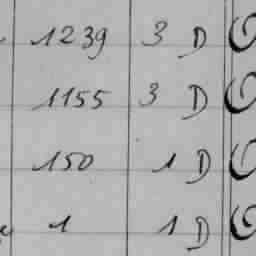 1239 3 D
1155 3 D
150 1 D
1 1 D